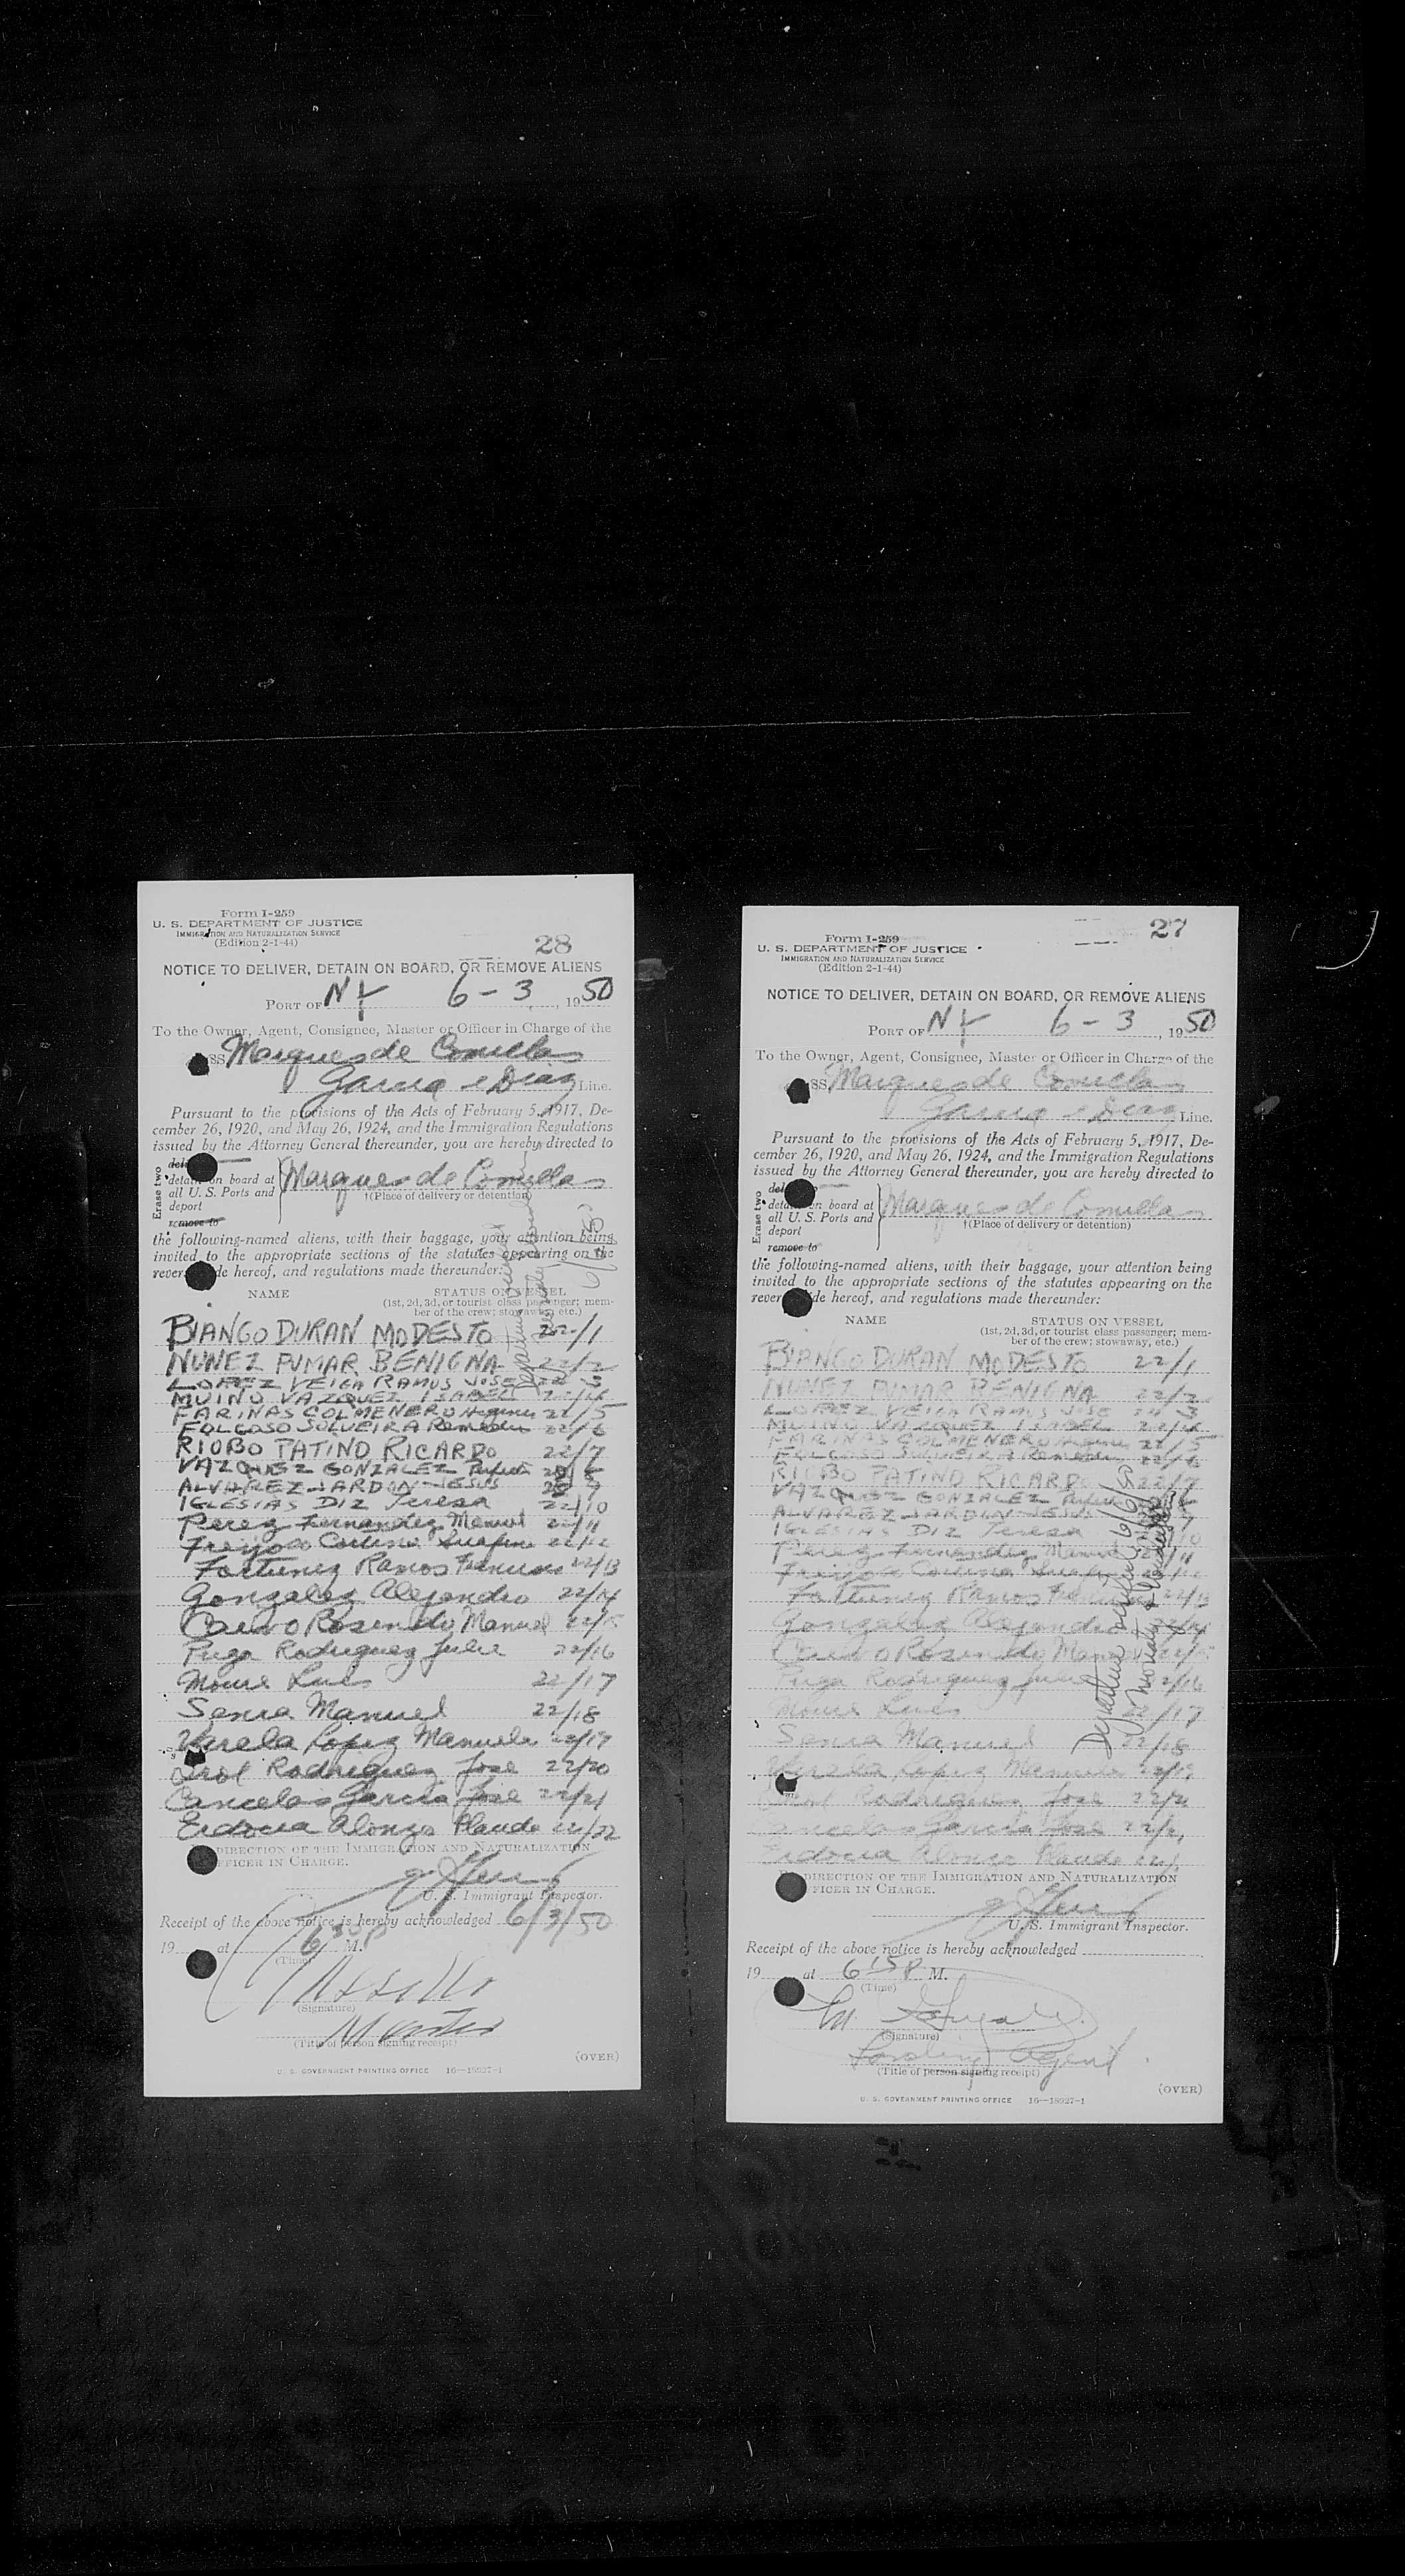 Form I-259
U. S. DEPARTMENT OF JUSTICE
IMMIGRATION AND NATURALIZATION SERVICE
(Edition 2-1-44)
28
NOTICE TO DELIVER, DETAIN ON BOARD, OR REMOVE ALIENS
PORT OF NY 6-3, 1950
To the Owner, Agent, Consignee, Master or Officer in Charge of the
SS Marques de Comillas
Garcia & Diaz Line.
Pursuant to the provisions of the Acts of February 5, 1917, De-
cember 26, 1920, and May 26, 1924, and the Immigration Regulations
issued by the Attorney General thereunder, you are hereby directed to
Erase two
detain on board at
all U. S. Ports and
deport
remove to
Marques de Comillas
†(Place of delivery or detention)
the following-named aliens, with their baggage, your attention being
invited to the appropriate sections of the statutes appearing on the
reverse side hereof, and regulations made thereunder:
NAME STATUS ON VESSEL
(1st, 2d, 3d, or tourist class passenger; mem-
ber of the crew; stowaway, etc.)
BIANGO DURAN MODESTO 22/1
NUNEZ PUMAR BENIGNA 22/2
LOPEZ VEIGA RAMUS JOSE 22 3
MUINO VAZQUEZ ISABEL 22/4
FARINAS COLMENERO 22/5
FOLGOSO SOLVEIRA Remedios 22/6
RIOBO PATINO RICARDO 22/7
VAZQUEZ GONZALEZ 8
ALVAREZ JARDON JESUS 9
IGLESIAS DIZ Teresa 22/10
Perez Fernandez Manuel 22/11
22/12
Fortunez Ramos 22/13
Gonzalez Alejandro 22/14
Calvo Rosendo Manuel 22/15
Puga Rodriguez Julio 22/16
Moure Luis 22/17
Senra Manuel 22/18
Varela Lopez Manuela 22/19
Rodriguez Jose 22/20
Cancelas Garcia Jose 22/21
Alonzo 22/22
DIRECTION OF THE IMMIGRATION AND NATURALIZATION
OFFICER IN CHARGE.
U. S. Immigrant Inspector.
Receipt of the above notice is hereby acknowledged 6/3/50
19 at 6 30 P M.
(Time)
(Signature)
Master
(Title of person signing receipt)
(OVER)
U. S. GOVERNMENT PRINTING OFFICE 16—18927-1
Form I-259
U. S. DEPARTMENT OF JUSTICE
IMMIGRATION AND NATURALIZATION SERVICE
(Edition 2-1-44)
27
NOTICE TO DELIVER, DETAIN ON BOARD, OR REMOVE ALIENS
PORT OF NY 6-3, 1950
To the Owner, Agent, Consignee, Master or Officer in Charge of the
SS Marques de Comillas
Garcia & Diaz Line.
Pursuant to the provisions of the Acts of February 5, 1917, De-
cember 26, 1920, and May 26, 1924, and the Immigration Regulations
issued by the Attorney General thereunder, you are hereby directed to
Erase two
detain on board at
all U. S. Ports and
deport
remove to
Marques de Comillas
†(Place of delivery or detention)
the following-named aliens, with their baggage, your attention being
invited to the appropriate sections of the statutes appearing on the
reverse side hereof, and regulations made thereunder:
NAME STATUS ON VESSEL
(1st, 2d, 3d, or tourist class passenger; mem-
ber of the crew; stowaway, etc.)
BIANGO DURAN MODESTO 22/1
NUNEZ PUMAR BENIGNA 22/2
LOPEZ VEIGA RAMUS JOSE 22 3
MUINO VAZQUEZ ISABEL 22/4
FARINAS COLMENERO 22/5
FOLGOSO SOLVEIRA Remedios 22/6
RIOBO PATINO RICARDO 22/7
VAZQUEZ GONZALEZ
ALVAREZ JARDON JESUS
IGLESIAS DIZ Teresa
Perez Fernandez Manuel
Fortunez Ramos 22/13
Gonzalez Alejandro 22/14
Calvo Rosendo Manuel
Puga Rodriguez Julio
Moure Luis 22/17
Senra Manuel 22/18
Varela Lopez Manuela 22/19
Rodriguez Jose
Cancelas Garcia Jose
Departure verified 6/6/50
DIRECTION OF THE IMMIGRATION AND NATURALIZATION
OFFICER IN CHARGE.
U. S. Immigrant Inspector.
Receipt of the above notice is hereby acknowledged
19 at 6 15 P M.
(Time)
(Signature)
Landing Agent
(Title of person signing receipt)
(OVER)
U. S. GOVERNMENT PRINTING OFFICE 16—18927-1